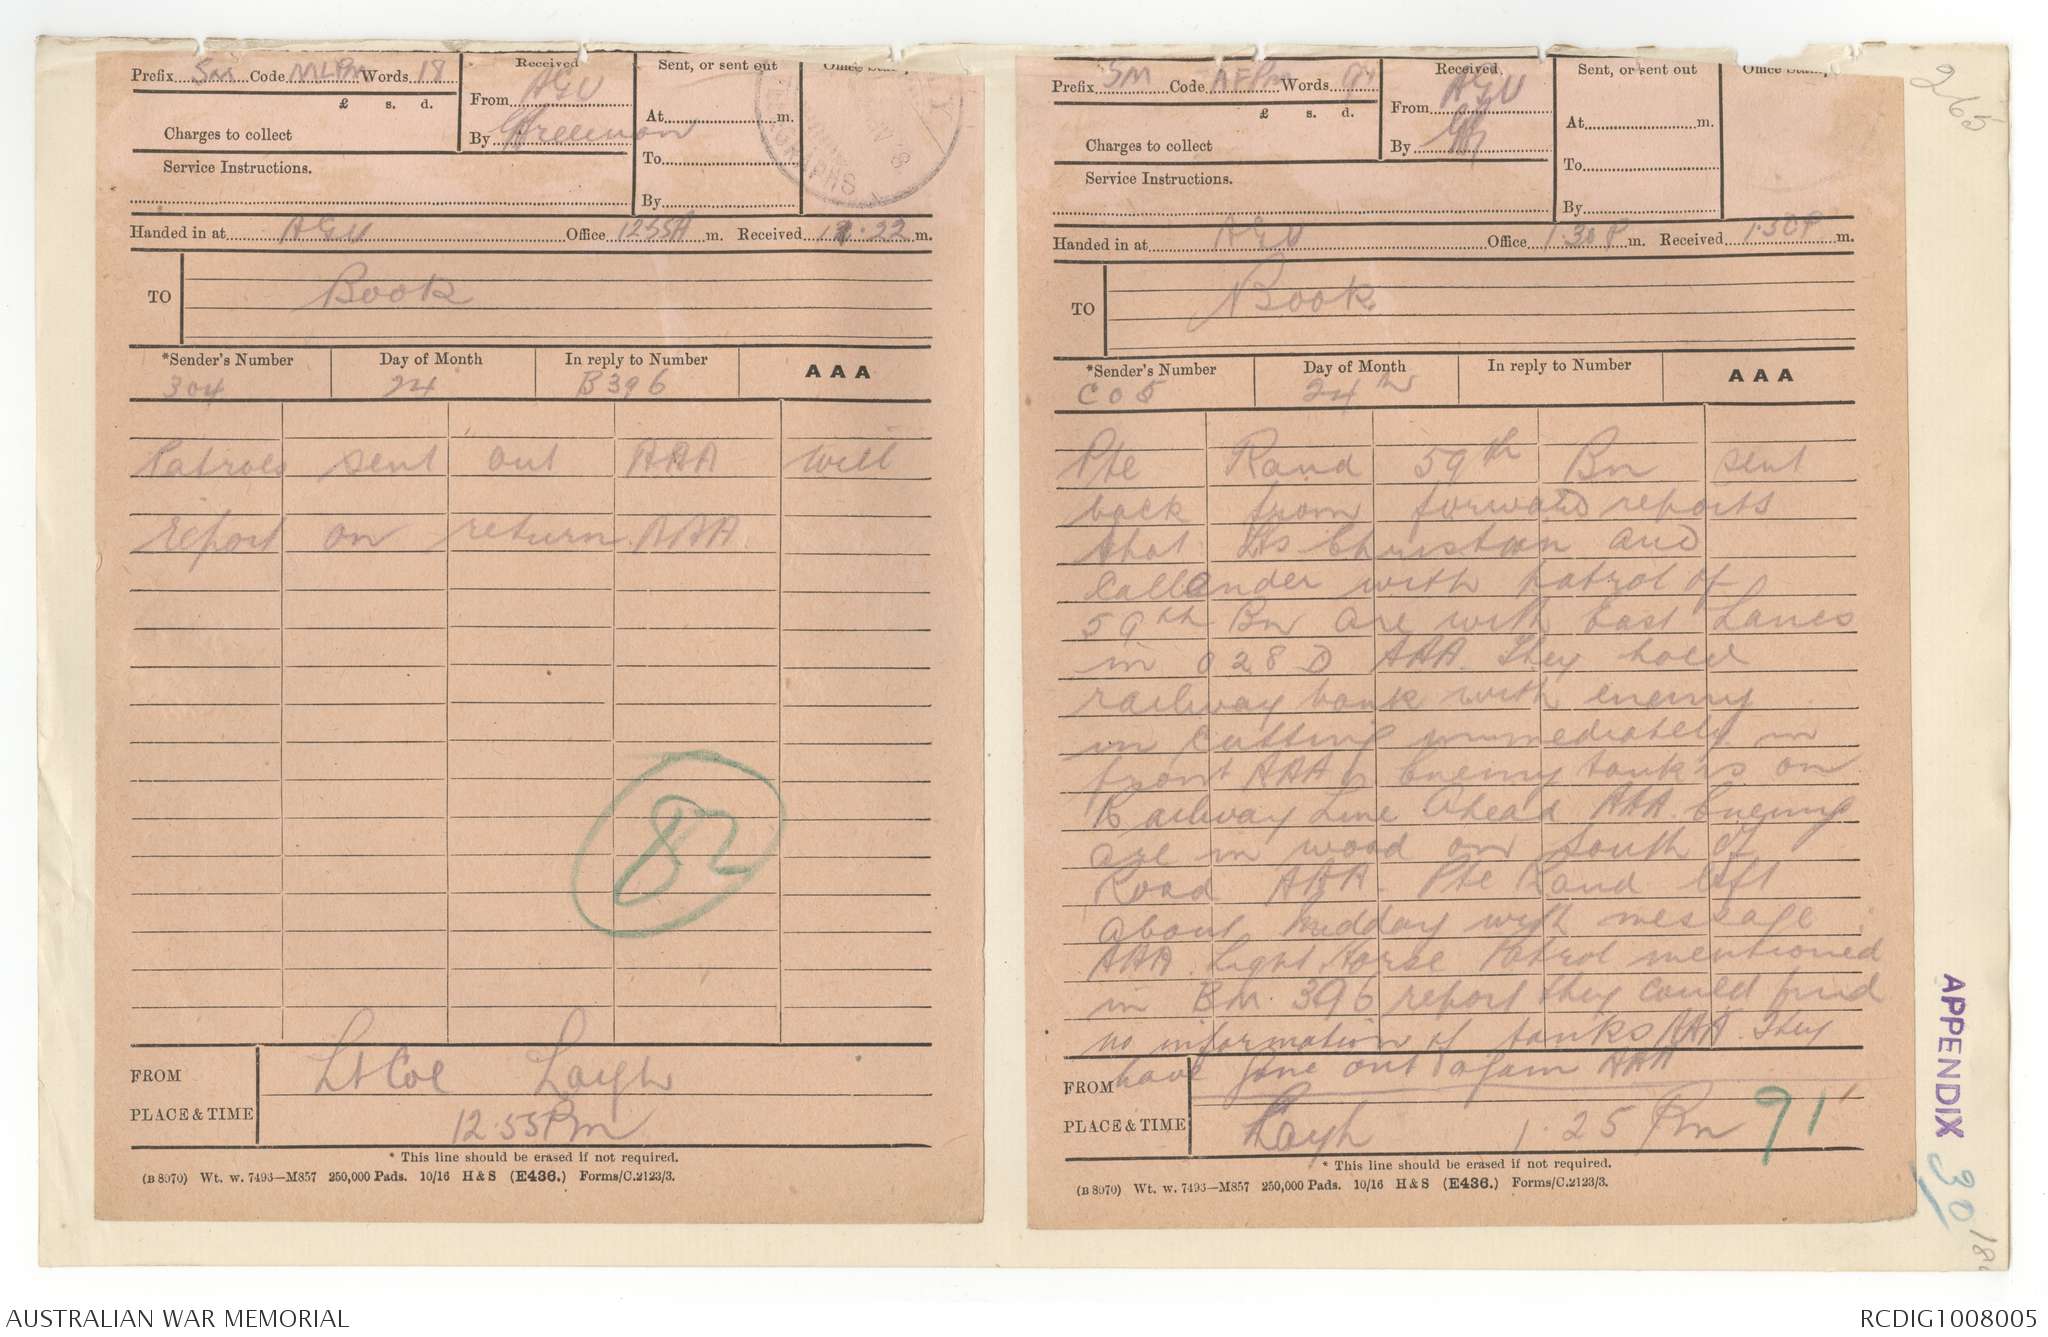 Prefix SM Code MLPm Words 18
Received
From AGU
By Freeman
Sent, or sent out
At m.
To
By
£ s. d.
Charges to collect
Service Instructions.
Handed in at AGU Office 12.55A m. Received 1.22 m.
TO Book
*Sender's Number Day of Month In reply to Number AAA
304 24 B396
Patrols sent out AAA will
report on return AAA
82
FROM Lt Col Layh
PLACE & TIME 12.55 Pm
* This line should be erased if not required.
(B 8070) Wt. w. 7493—M857 250,000 Pads. 10/16 H & S (E436.) Forms/C.2123/3.
Prefix SM Code AFPm Words
Received
From AGU
By
Sent, or sent out
At m.
To
By
£ s. d.
Charges to collect
Service Instructions.
Handed in at AGU Office 1.30 P m. Received 1.30P m.
TO Book
*Sender's Number Day of Month In reply to Number AAA
C05 24th
Pte Rand 59th Bn sent
back from forward reports
that Lts Christian and
Callander with patrol of
59th Bn are with East Lancs
in O 28 D AAA. They hold
railway bank with enemy
in cutting immediately in
front AAA Enemy tank is on
Railway Line Ahead AAA. Enemy
are in wood on South of
Road AAA. Pte Rand left
about midday with message
AAA. Light Horse Patrol mentioned
in BM. 396 report they could find
no information of tanks AAA. They
have gone out again AAA
FROM
PLACE & TIME Layh 1.25 Pm
91
* This line should be erased if not required.
(B 8070) Wt. w. 7493—M857 250,000 Pads. 10/16 H & S (E436.) Forms/C.2123/3.
265
APPENDIX 30
AUSTRALIAN WAR MEMORIAL
RCDIG1008005